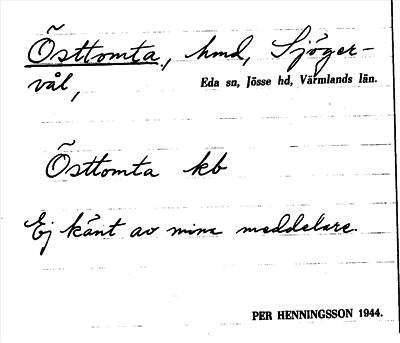 Östtomta, hmd, Sjöger-
vål,
Eda sn, Jösse hd, Värmlands län.
Östtomta kb
Ej känt av mina meddelare.
PER HENNINGSSON 1944.